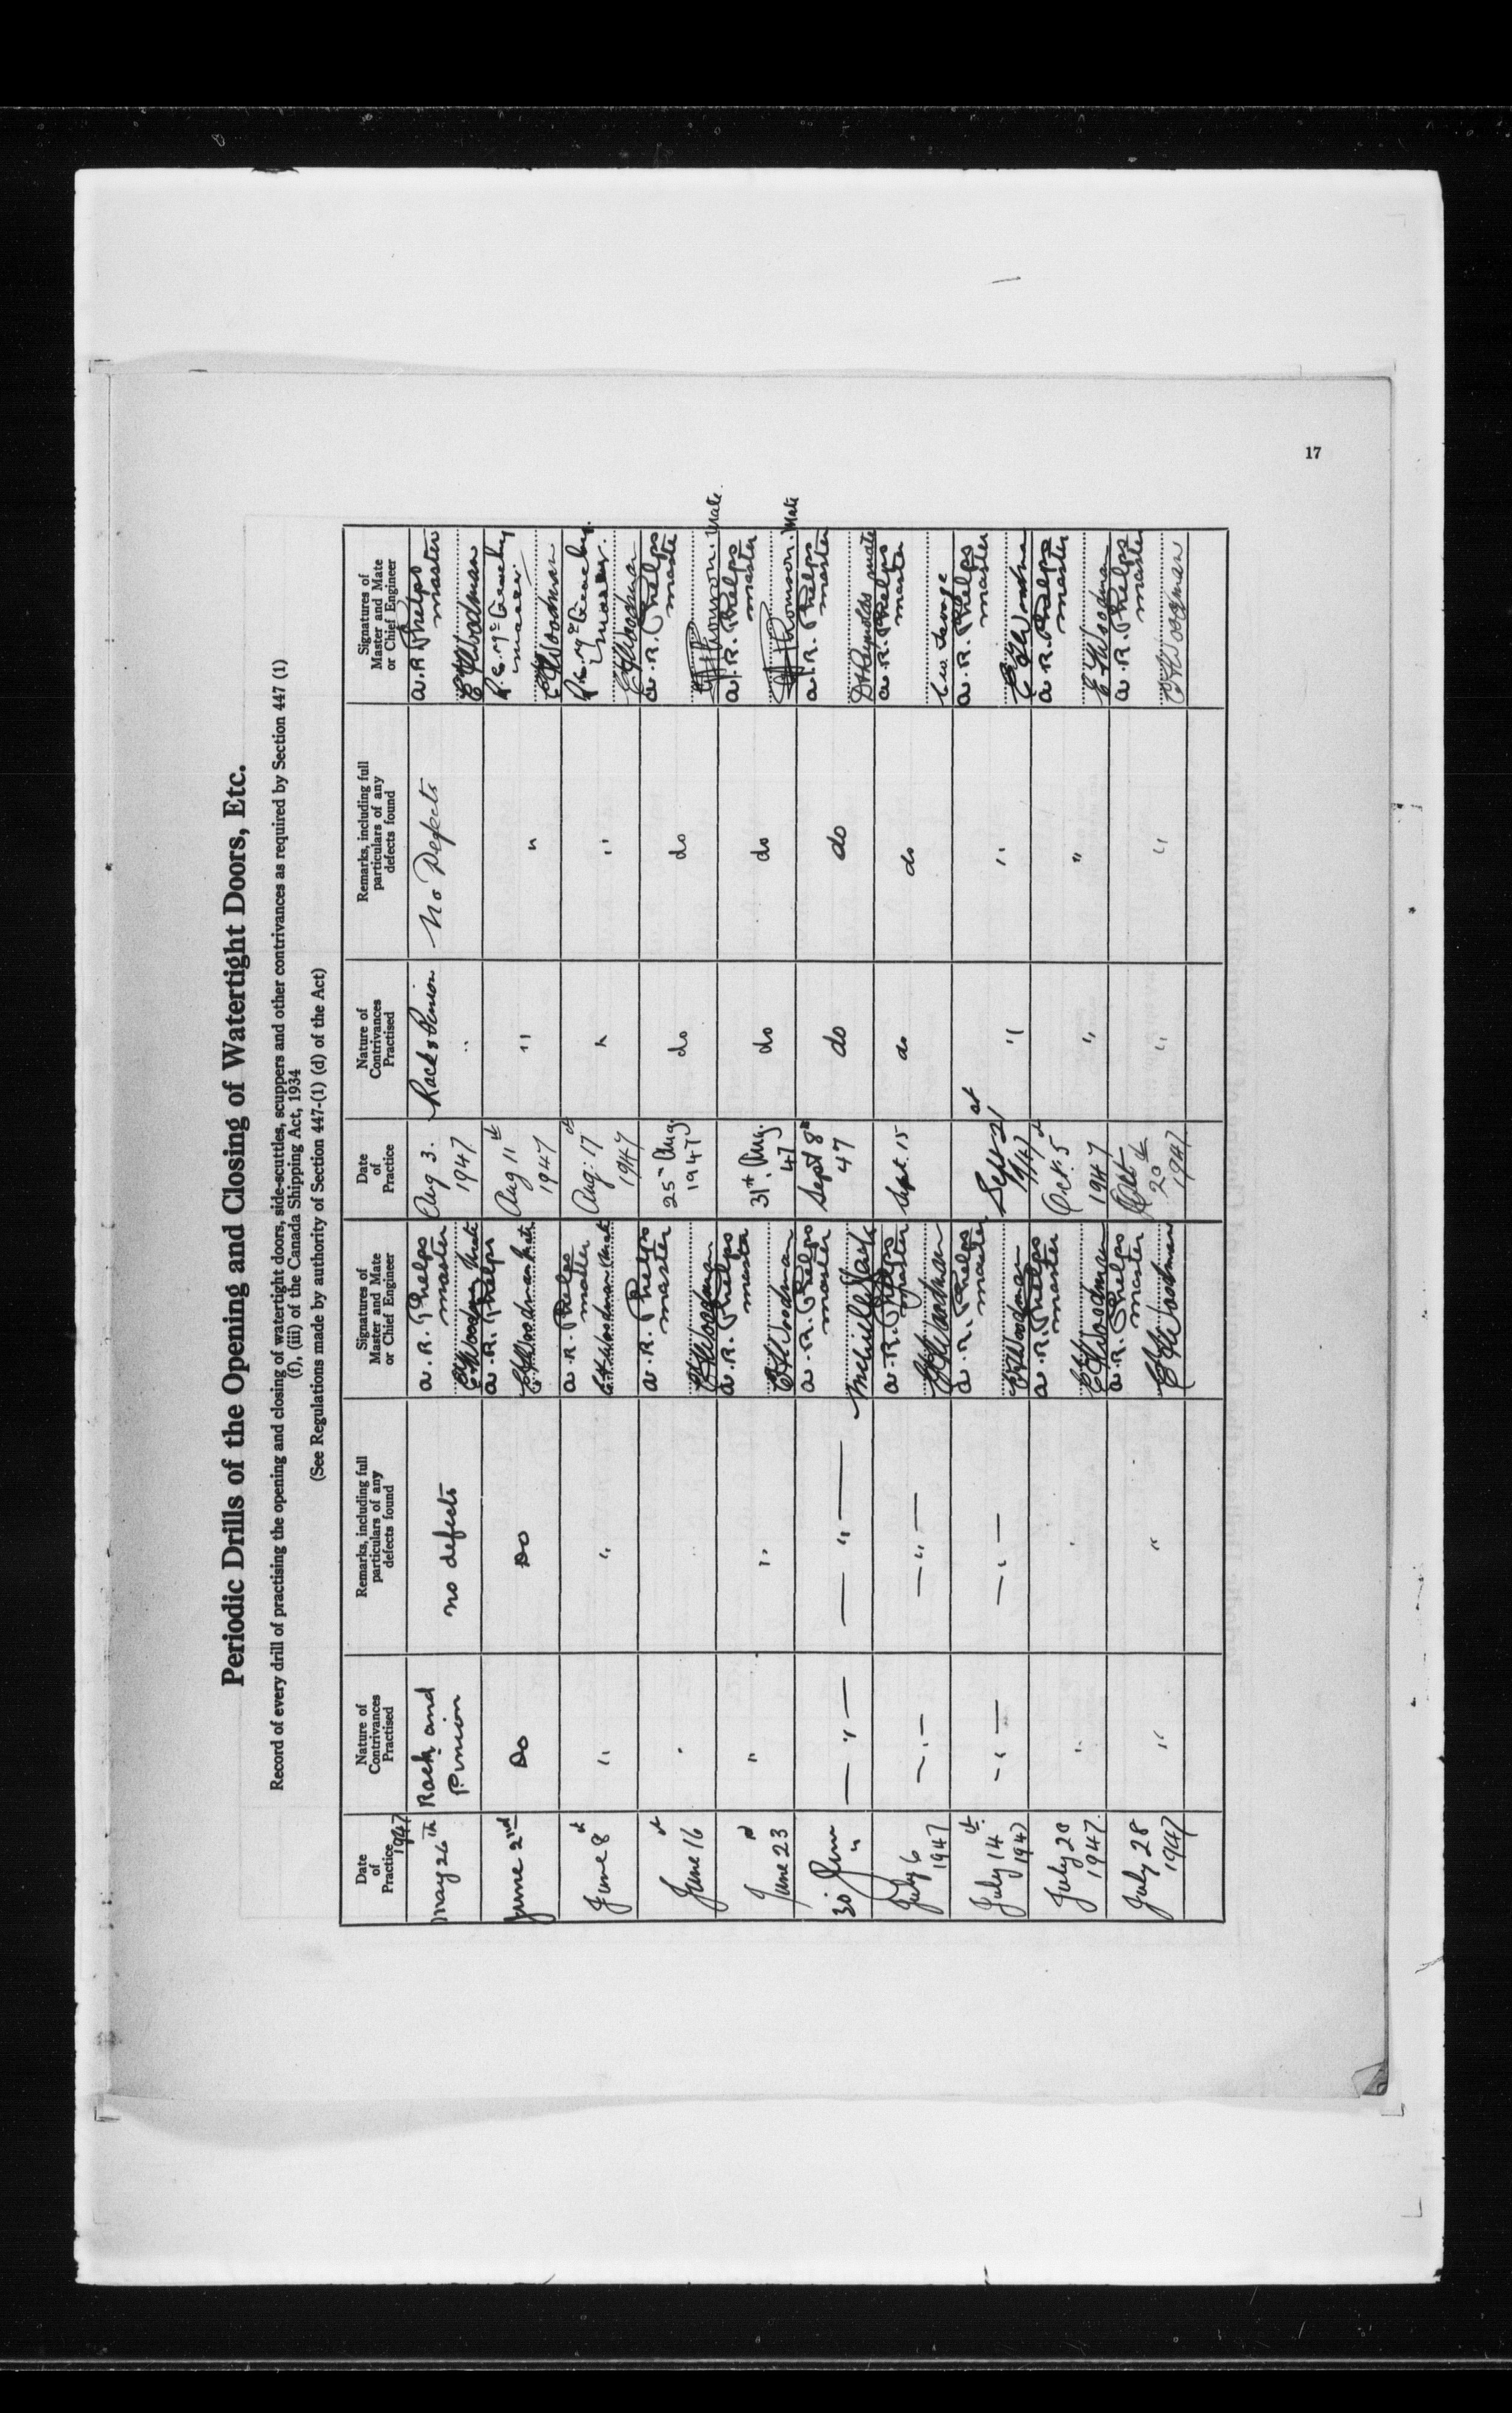 17
Periodic Drills of the Opening and Closing of Watertight Doors, Etc.
Record of every drill of practising the opening and closing of watertight doors, side-scuttles, scuppers and other contrivances as required by Section 447 (1)
(f), (iii) of the Canada Shipping Act, 1934
(See Regulations made by authority of Section 447-(1) (d) of the Act)
Date of Practice
Nature of Contrivances Practised
Remarks, including full particulars of any defects found
Signatures of Master and Mate or Chief Engineer
Date of Practice
Nature of Contrivances Practised
Remarks, including full particulars of any defects found
Signatures of Master and Mate or Chief Engineer
1947
May 26th
Rack and
Pinion
no defects
A. R. Phelps
master
Woodman Mate
June 2nd
Do
Do
A. R. Phelps
Woodman Mate
June 8th
"
"
A. R. Phelps
master
Woodman Mate
June 16th
"
A. R. Phelps
master
Woodman
June 23rd
"
"
A. R. Phelps
master
Woodman
30 June
"
— " —
— " —
A. R. Phelps
master
July 6
1947
— " —
— " —
A. R. Phelps
master
Woodman
July 14th
1947
— " —
— " —
A. R. Phelps
master
Woodman
July 20
1947
"
A. R. Phelps
master
Woodman
July 28
1947
"
"
A. R. Phelps
master
Woodman
Aug 3.
1947
Rack & Pinion
"
No Defects
A. R. Phelps
master
Woodman
Aug 11th
1947
"
"
Woodman
Aug: 17th
1947
"
"
Woodman
25th Aug
1947
do
do
A. R. Phelps
master
Thomson. Mate.
31st. Aug.
47
do
do
A. R. Phelps
master
Thomson. Mate
Sept 8th
47
do
do
A. R. Phelps
master
Reynolds mate
Sept. 15
do
do
A. R. Phelps
master
Geo. George
Sept 21st
1947
"
"
A. R. Phelps
master
Woodman
Oct. 5th
1947
"
"
A. R. Phelps
master
Woodman
Oct
20th
1947
"
"
A. R. Phelps
master
Woodman